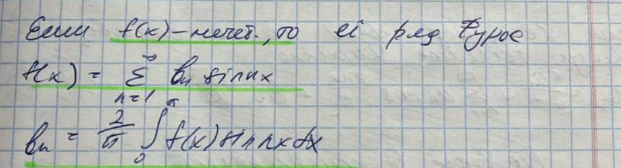 Если f(x) - нечет., то её ряд Фурье
f(x) = ∞ Σ n=1 bn sin nx
bn = 2/π ∫ 0 π f(x) sin nx dx